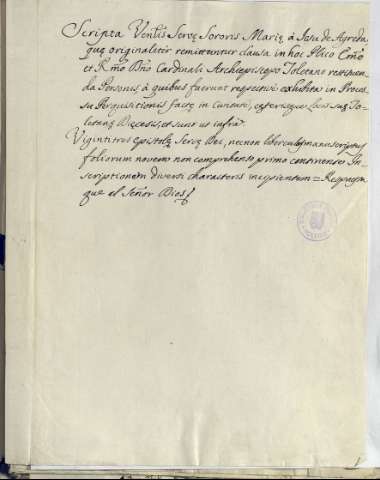 Scripta Ven.lis Servę Sororis Marię à Jesu de Agreda
quę originaliter remittuntur clausa in hoc Plico Em̃o
et Rm̃o Dño Cardinali Archiepiscopo Toletano restituen
da Personis, à quibus fuerunt respectivè exhibita in Proces
su Perquisitionis factę in Curia, cęterisque Locis suę To
letanę Dięcesis, et sunt ut infra
Viginti tres Epistolę Servę Dei, necnon libercul, manuscriptus
foliorum novem non comprehenso primo continenter In
scriptionem diversi characteris incipientem =
que el Señor Dios